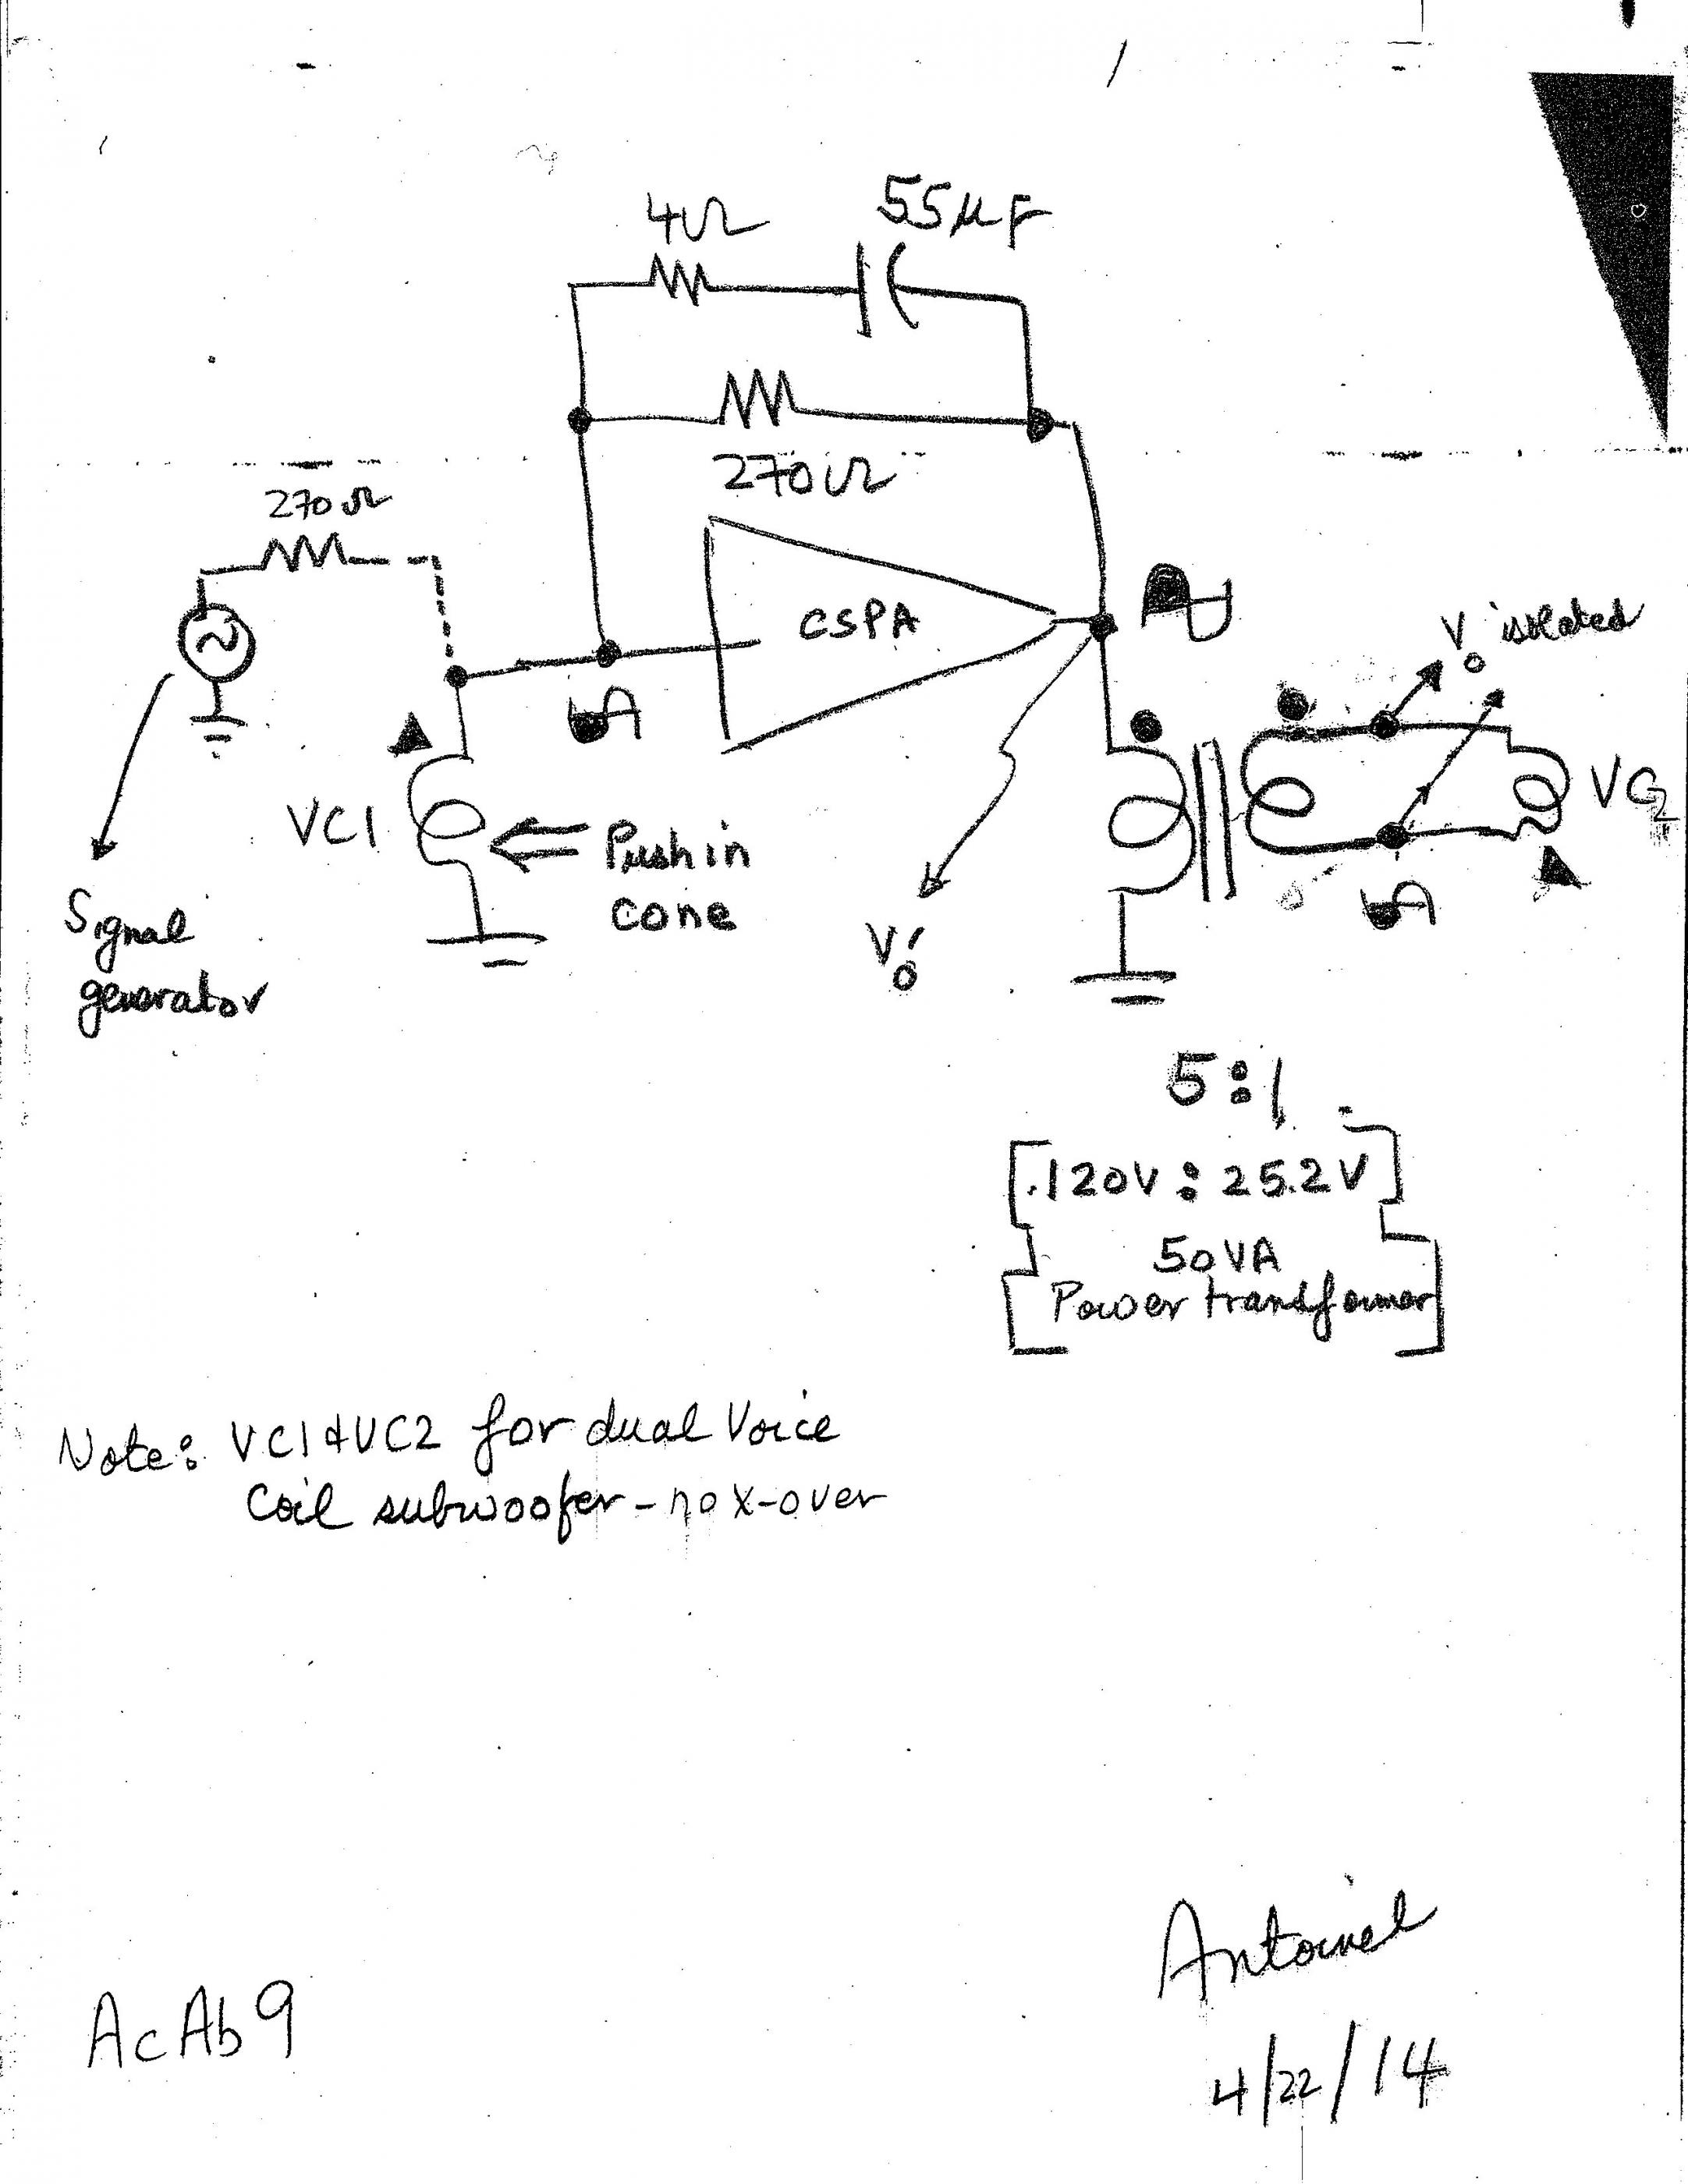 4Ω 55μF
270Ω
270Ω
CSPA
V₀ isolated
VC1
Push in
cone
VC2
Signal
generator
V₀'
5:1
[120V : 25.2V]
50VA
Power transformer
Note: VC1 & VC2 for dual Voice
Coil subwoofer - no x-over
Antoinel
AcAb9
4/22/14